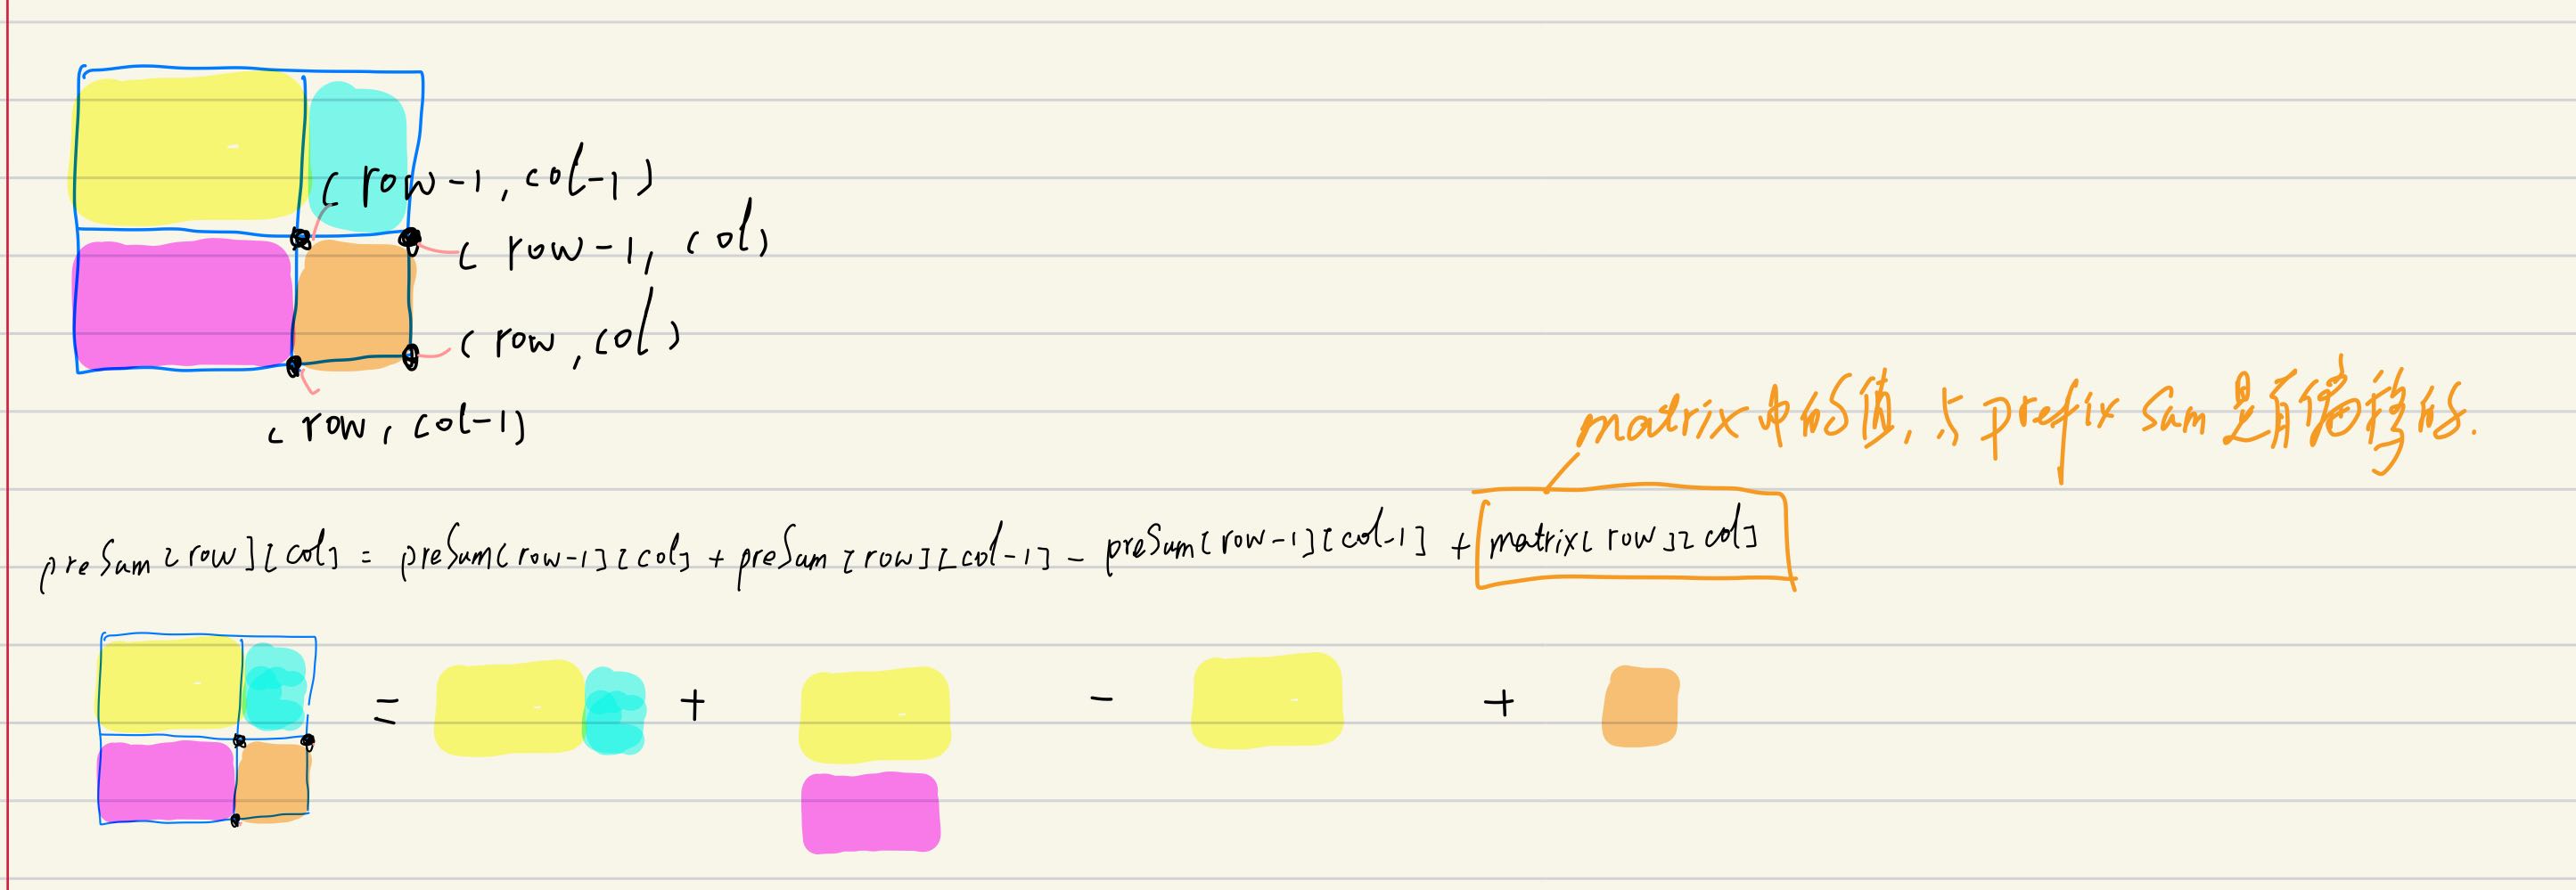 ( row-1, col-1)
( row-1, col)
( row, col)
( row, col-1)
matrix 中的值, 与 prefix sum 是有偏移的.
preSum[row][col] = preSum[row-1][col] + preSum[row][col-1] - preSum[row-1][col-1] + matrix[row][col]
= + - +